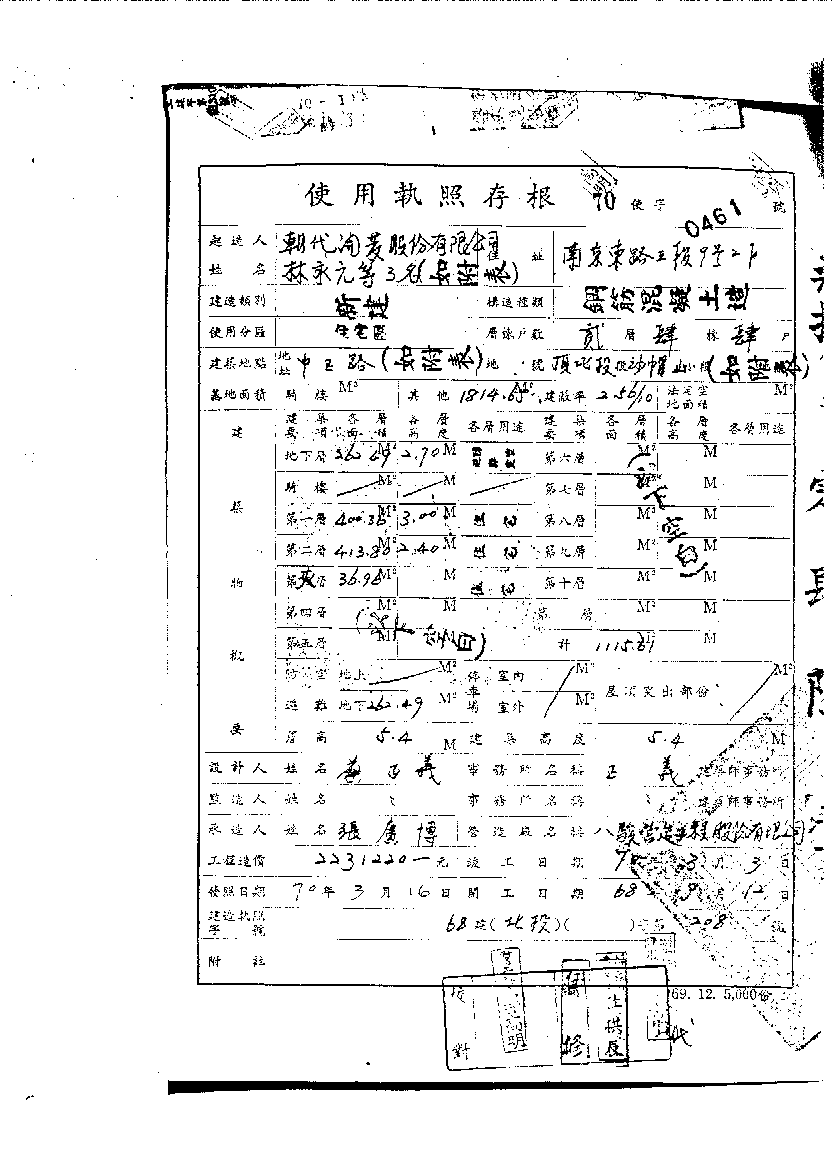 使用執照存根 70 使字 0461 號
起造人 朝代 股份有限 址 南京東路 段9号2F
姓名 林永元等3名(如附表)
建造類別 新建 構造種類 鋼筋混凝土造
使用分區 住宅區 層棟戶數 貳層肆棟肆戶
建築地點 地址 中 路(如附表) 地號 頂北投段 小段(如附表)
基地面積 騎樓 M² 其他 1814.65 M² 建蔽率 法定空地面積 M²
建築物概要 建築要項 各層面積 各層高度 各層用途 建築要項 各層面積 各層高度 各層用途
地下層 262.49 M² 2.70 M 第六層 M² M
騎樓 M² M 第七層 M² M
第一層 400.36 M² 3.00 M 住宅 第八層 M² M
第二層 413.80 M² 2.40 M 住宅 第九層 M² M
第 層 36.96 M² M 住宅 第十層 M² M
第四層 M² M 第 層 M² M
第五層 M² M 計 1115.61 M² M
(以下空白)
(以下空白)
防空 地上 M² 停車場 室內 M² 屋頂突出部份 M²
避難 地下 262.49 M² 室外 M²
層高 5.4 M 建築高度 5.4 M
設計人 姓名 正義 事務所名稱 正義 建築師事務所
監造人 姓名 事務所名稱 建築師事務所
承造人 姓名 張廣博 營造廠名稱 八駿營造工程股份有限公司
工程造價 2231220 元 竣工日期 70 年 3 月 3 日
發照日期 70 年 3 月 16 日 開工日期 68 年 9 月 12 日
建造執照字號 68建(北投)( )字第 208 號
附註
69. 12. 5,000份
校對